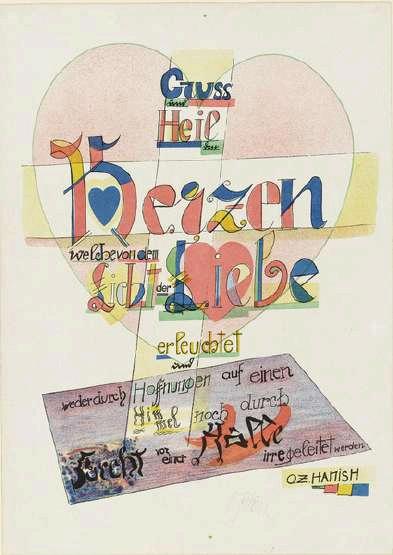 Gruss
und
Heil den
Herzen
welche von dem
Licht der Liebe
erleuchtet
und
weder durch Hoffnungen auf einen
Himmel noch durch
Furcht vor einer Hölle irregeleitet werden
O.Z. HANISH